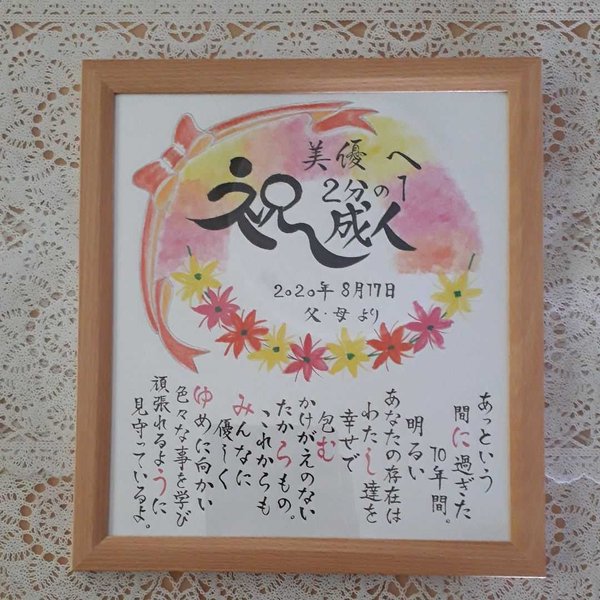 美優へ
2分の1
祝成人
2020年8月17日
父・母より
あっという
間に過ぎた
10年間。
明るい
あなたの存在は
わたし達を
幸せで
包む
かけがえのない
たからもの。
これからも
みんなに
優しく
ゆめに向かい
色々な事を学び
頑張れるように
見守っているよ。